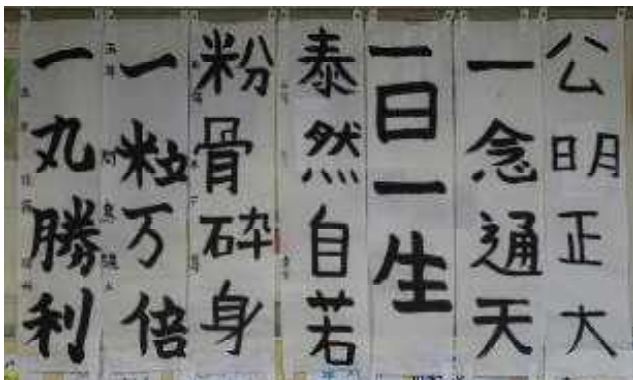 公明正大
一念通天
一日一生
泰然自若
粉骨砕身
一粒万倍
一丸勝利